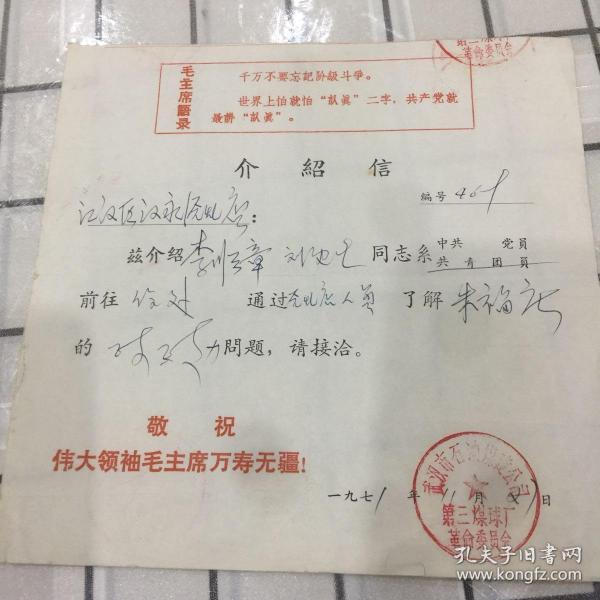 第三煤球厂
革命委员会
毛主席語录
千万不要忘記阶級斗爭。
世界上怕就怕“訊眞”二字，共产党就
最讲“訊眞”。
介紹信
编号
江汉区汉永
店：
兹介紹李順章 刘 同志系中共 党員
共青团員
前往 你处 通过 店人員 了解 朱福
的 問題，请接洽。
敬祝
伟大领袖毛主席万寿无疆！
一九七1年11月 日
武汉市石油煤建公司
第三煤球厂
革命委员会
孔夫子旧书网
www.kongfz.com